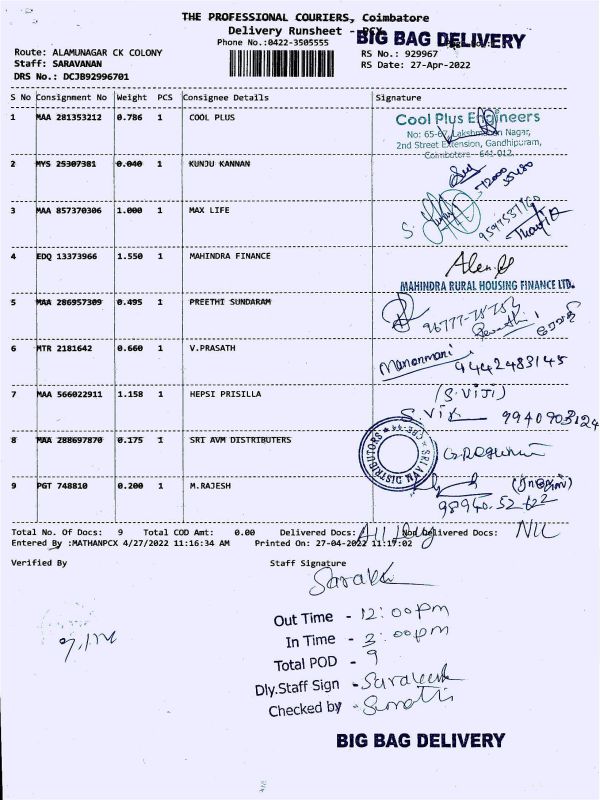 THE PROFESSIONAL COURIERS, Coimbatore
Delivery Runsheet - PCX
BIG BAG DELIVERY
Phone No.:0422-3505555
Route: ALAMUNAGAR CK COLONY
RS No.: 929967
Staff: SARAVANAN
RS Date: 27-Apr-2022
DRS No.: DCJB92996701
S No Consignment No Weight PCS Consignee Details Signature
1 MAA 281353212 0.786 1 COOL PLUS
Cool Plus Engineers
No: 65-67, Lakshmaban Nagar,
2nd Street Extension, Gandhipuram,
Coimbatore - 641 012.
2 MYS 25307381 0.040 1 KUNJU KANNAN
3 MAA 857370306 1.000 1 MAX LIFE
4 EDQ 13373966 1.550 1 MAHINDRA FINANCE
MAHINDRA RURAL HOUSING FINANCE LTD.
5 MAA 286957309 0.495 1 PREETHI SUNDARAM
6 MTR 2181642 0.660 1 V.PRASATH
Manonmani 9442483145
7 MAA 566022911 1.158 1 HEPSI PRISILLA
(S.VIJI)
9940903124
8 MAA 288697870 0.175 1 SRI AVM DISTRIBUTERS
9 PGT 748810 0.200 1 M.RAJESH
98940.52622
Total No. Of Docs: 9 Total COD Amt: 0.00 Delivered Docs: Non Delivered Docs: NIL
Entered By :MATHANPCX 4/27/2022 11:16:34 AM Printed On: 27-04-2022 11:17:02
Verified By Staff Signature
Out Time - 12:00pm
In Time - 3:00pm
Total POD - 9
Dly.Staff Sign -
Checked by -
BIG BAG DELIVERY